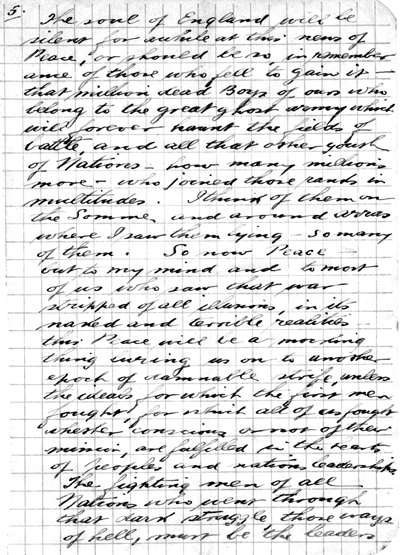 5.
The soul of England will be
silent for awhile at this news of
Peace, or should be so, in remember
ance of those who fell to gain it –
that million dead Boys of ours who
belong to the great ghost army which
will forever haunt the fields of
battle, and all that other youth
of Nations – how many millions
more – who joined those ranks in
multitudes. I think of them on
the Somme and around Arras
where I saw them lying – so many
of them. So now Peace –
but to my mind and to most
of us who saw that war
stripped of all illusions, in its
naked and terrible realities
this Peace will be a mocking
thing luring us on to another
epoch of damnable strife, unless
the ideals for which the first men
fought, for which all of us fought
whether conscious or not of their
mission, are fulfilled in the hearts
of peoples and nations leaderships
The fighting men of all
Nations who went through
that dark struggle, those ways
of hell, must be the leaders